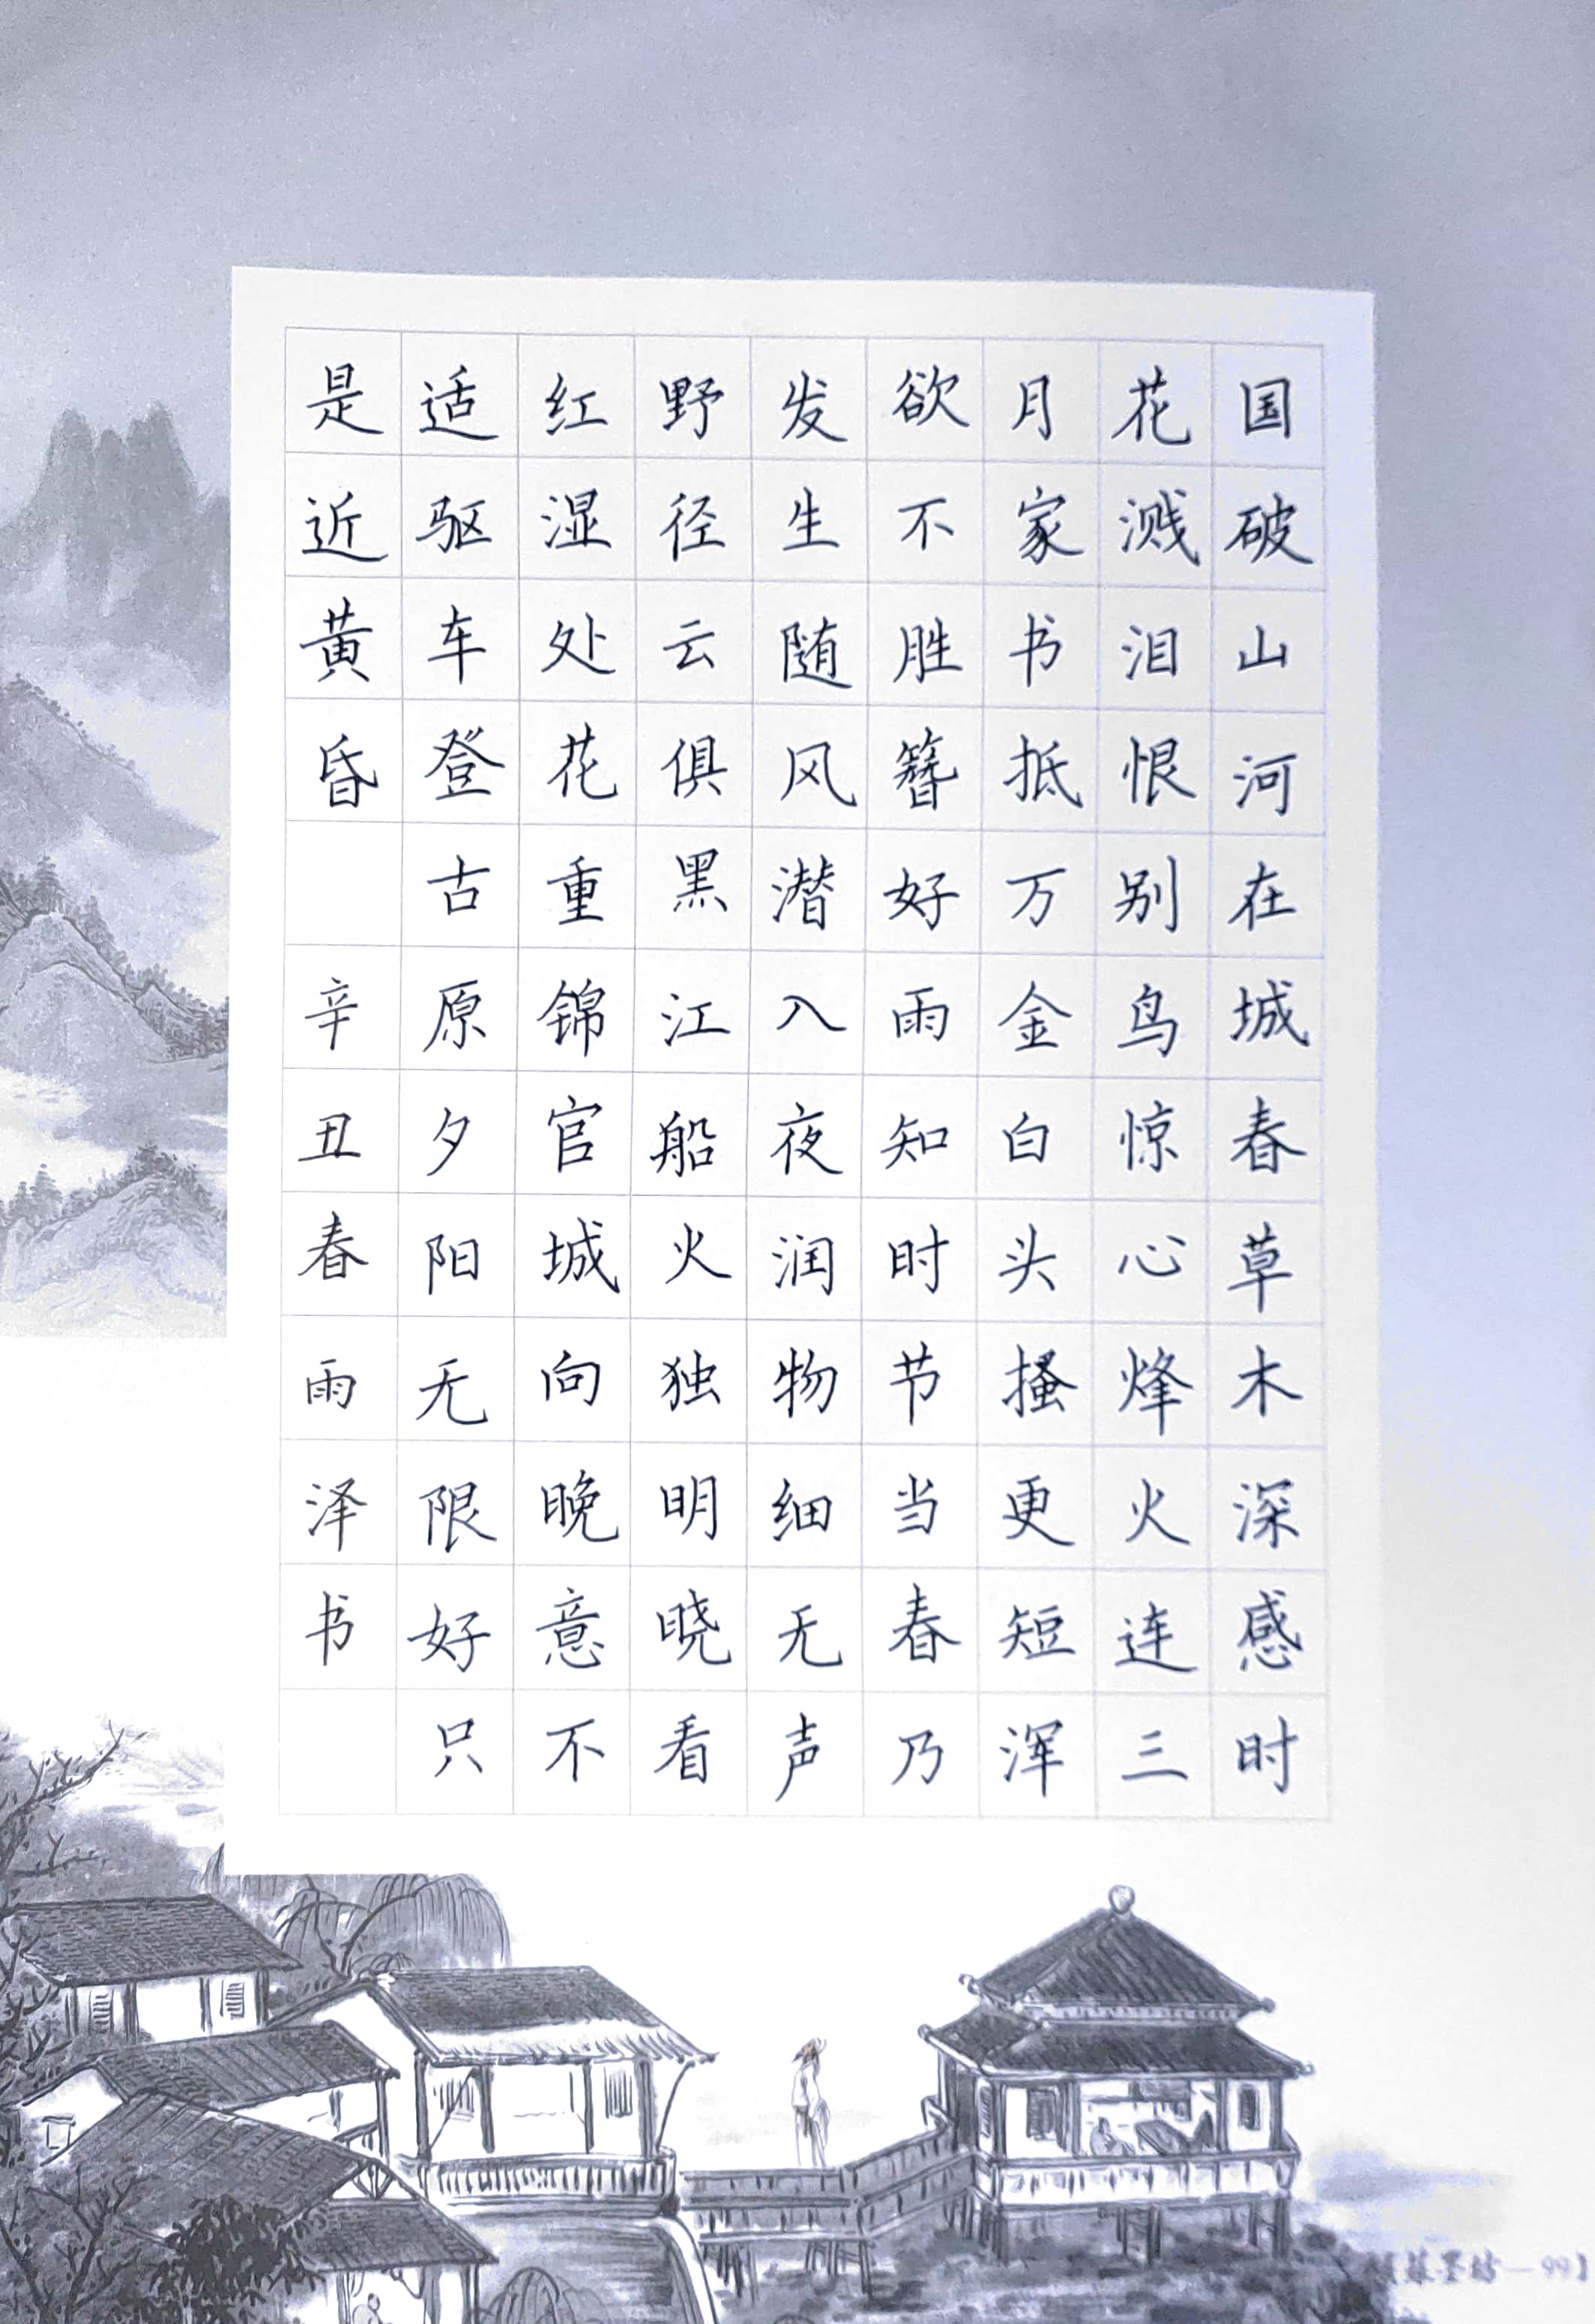 国破山河在城春草木深感时
花溅泪恨别鸟惊心烽火连三
月家书抵万金白头搔更短浑
欲不胜簪好雨知时节当春乃
发生随风潜入夜润物细无声
野径云俱黑江船火独明晓看
红湿处花重锦官城向晚意不
适驱车登古原夕阳无限好只
是近黄昏 辛丑春雨泽书